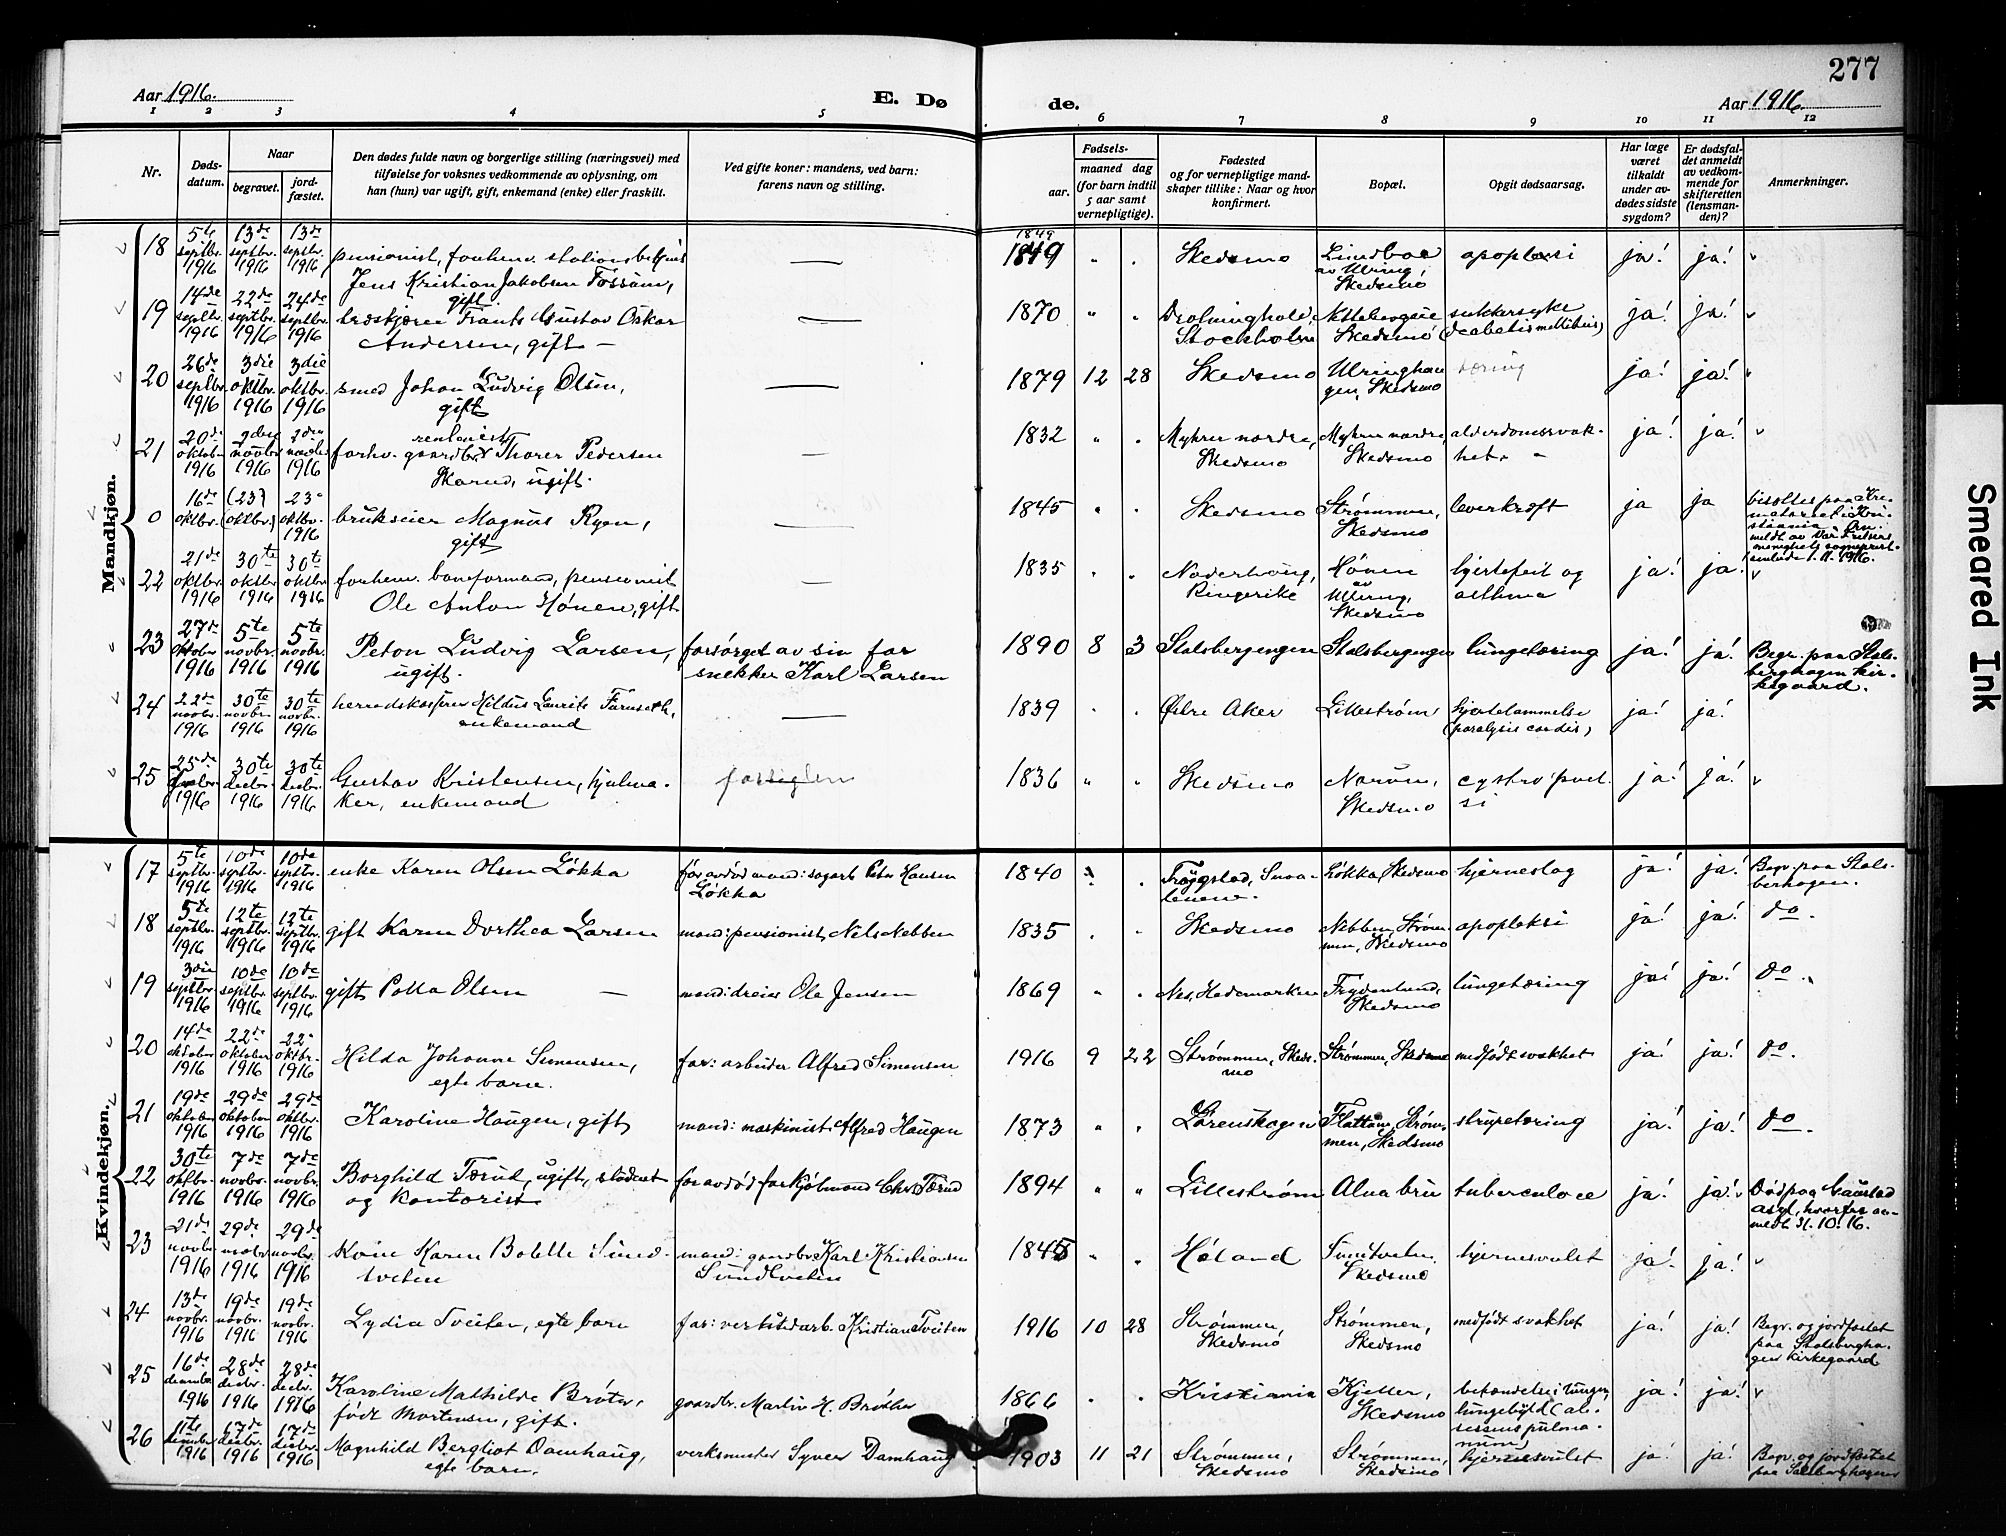 277
Aar 1916.
E. Dø
de.
Aar 1916.
1 2 3 4 5 6 7 8 9 10 11 12
Nr.
Døds-
datum.
Naar
begravet.
jord-
fæstet.
Den dødes fulde navn og borgerlige stilling (næringsvei) med
tilføielse for voksnes vedkommende av oplysning, om
han (hun) var ugift, gift, enkemand (enke) eller fraskilt.
Ved gifte koner: mandens, ved barn:
farens navn og stilling.
Fødsels-
aar.
maaned dag
(for barn indtil
5 aar samt
vernepligtige).
Fødested
og for vernepligtige mand-
skaper tillike: Naar og hvor
konfirmert.
Bopæl.
Opgit dødsaarsag.
Har læge
været
tilkaldt
under av-
dødes sidste
sygdom?
Er dødsfal-
det anmeldt
av vedkom-
mende for
skifteretten
(lensman-
den)?
Anmerkninger.
Mandkjøn.
18 5te septbr. 1916 13de septbr. 1916 13de septbr. 1916 pensionist, forhenv. stationsbetjent
Jens Kristian Jakobsen Fossum,
gift
1849 1849 Skedsmo Lindboe
av Ulring,
Skedsmo apoplexi ja! ja!
19 14de septbr. 1916 22de septbr. 1916 24de septbr. 1916 træskjærer Frants Gustav Oskar
Andersen, gift
1870 Drotningholm,
Stockholm Nitteberggeie
Skedsmo sukkersyke
(deabetis mellitus) ja! ja!
20 26de septbr. 1916 3die oktbr. 1916 3die oktbr. 1916 smed Johan Ludvig Olsen,
gift
1879 12 28 Skedsmo Ulringhau
gen, Skedsmo tæring ja! ja!
21 20de oktobr. 1916 2den novbr. 1916 2den novbr. 1916 rentenist
forhv. gaardbr. Thorer Pedersen
Skarud, ugift.
1832 Myhrer nordre,
Skedsmo Myhrer nordre,
Skedsmo alderdomssvak-
het. ja! ja!
0 16de oktbr. (23) (oktbr.) 23 oktbr. 1916 brukseier Magnus Ryen,
gift
1845 Skedsmo Strømmen,
Skedsmo leverkræft ja ja bisættes paa Kre-
matoriet i Kri-
stiania. An-
meldt av Vor Frelsers
menighets sogneprest-
embede 1.11.1916.
22 21de oktobr. 1916 30te oktbr. 1916 30te oktobr. 1916 forhenv. baneformand, pensionist
Ole Anton Hønen, gift
1835 Noderhoug,
Ringerike Hønen
av
Ulring,
Skedsmo hjertefeil og
asthma ja! ja!
23 27de oktober 1916 5te novbr. 1916 5te novbr. 1916 Peton Ludvig Larsen,
ugift.
forsørget av sin far
snekker Karl Larsen
1890 8 3 Stalsbergengen Stalsbergengen lungetæring ja! ja! Begr. paa Stals-
berghagen kir-
kegaard.
24 22de novbr. 1916 30te novbr. 1916 30te novbr. 1916 herredskasserer Hildus Laurits Furuseth,
enkemand
1839 Østre Aker Lillestrøm hjertelammelse
(paralysis cordis) ja! ja!
25 25de 1916 30te decbr. 1916 30te decbr. 1916 Gustav Kristensen, hjulma-
ker, enkemand
1836 Skedsmo Narum,
Skedsmo ja! ja!
Kvindekjøn.
17 5te septbr. 1916 10de septbr. 1916 10de septbr. 1916 enke Karen Olsen Løkka
før avdød mand: sagarb. Peter Hansen
Løkka
1840 Trøgstad, Smaa-
lenene. Løkka, Skedsmo hjerneslag ja! ja! Begr. paa Stals-
berhagen.
18 5te septbr. 1916 12te septbr. 1916 12te septbr. 1916 gift Karen Dorthea Larsen
mand: pensionist, Nils Nebben
1835 Skedsmo Nebben, Strøm-
men, Skedsmo apopleksi ja! ja! do.
19 3die septbr. 1916 10de septbr. 1916 10de septbr. 1916 gift Polla Olsen
mand: dreier Ole Jensen
1869 Nes, Hedemarken Frydenlund,
Skedsmo lungetæring ja! ja! do.
20 14de oktober 1916 22de oktober 1916 22 oktbr. 1916 Hilda Johanne Simensen,
egte barn.
far: arbeider Alfred Simensen
1916 9 22 Strømmen, Skeds-
mo Strømmen, Skedsmo medfødt svakhet ja! ja! do.
21 19de oktober 1916 29de oktober 1916 29de oktbr. 1916 Karoline Haugen, gift
mand: maskinist Alfred Haugen
1873 Lørenskogen Flattum, Strøm-
men, Skedsmo strupetæring ja! ja! do.
22 30te oktbr. 1916 7de novbr. 1916 7de novbr. 1916 Borghild Tærud, ugift, student
og kontorist
før avdød far kjøbmand Chr. Tærud
1894 Lillestrøm Alna bru tuberculose ja! ja! Død paa Gaustad
asyl, hvorfra an-
meldt 31.10.16.
23 21de novbr. 1916 29de novbr. 1916 29de novbr. 1916 Kone Karen Bolette Sund-
tveten
mand: gaardbr. Karl Kristiansen
Sundtveten
1845 Høland Sundtveten,
Skedsmo hjernesvulst ja! ja!
24 13de novbr. 1916 19de novbr. 1916 19de novbr. 1916 Lydia Tveiten, egte barn
far: verkstedarb. Kristian Tveiten
1916 10 28 Strømmen,
Skedsmo Strømmen,
Skedsmo medfødt svakhet ja! ja! Begr. og jordfæstet
paa Stalsbergha-
gen kirkegaard
25 16de december 1916 28de decbr. 1916 28de decbr. 1916 Karoline Mathilde Brøter,
født Mortensen, gift.
gaardbr. Martin H. Brøter
1866 Kristiania Kjeller,
Skedsmo betændelse i lungen,
lungebyld (ab-
sessus pulmo-
num) ja! ja!
26 11te december 1916 17de decbr. 1916 17de decbr. 1916 Magnhild Bergliot Damhaug,
egte barn.
verksmester Syver Damhaug
1903 11 21 Strømmen,
Skedsmo Strømmen,
Skedsmo hjernesvulst ja! ja! Begr. og jordfæstet
paa Stalsberghagen
Smeared Ink